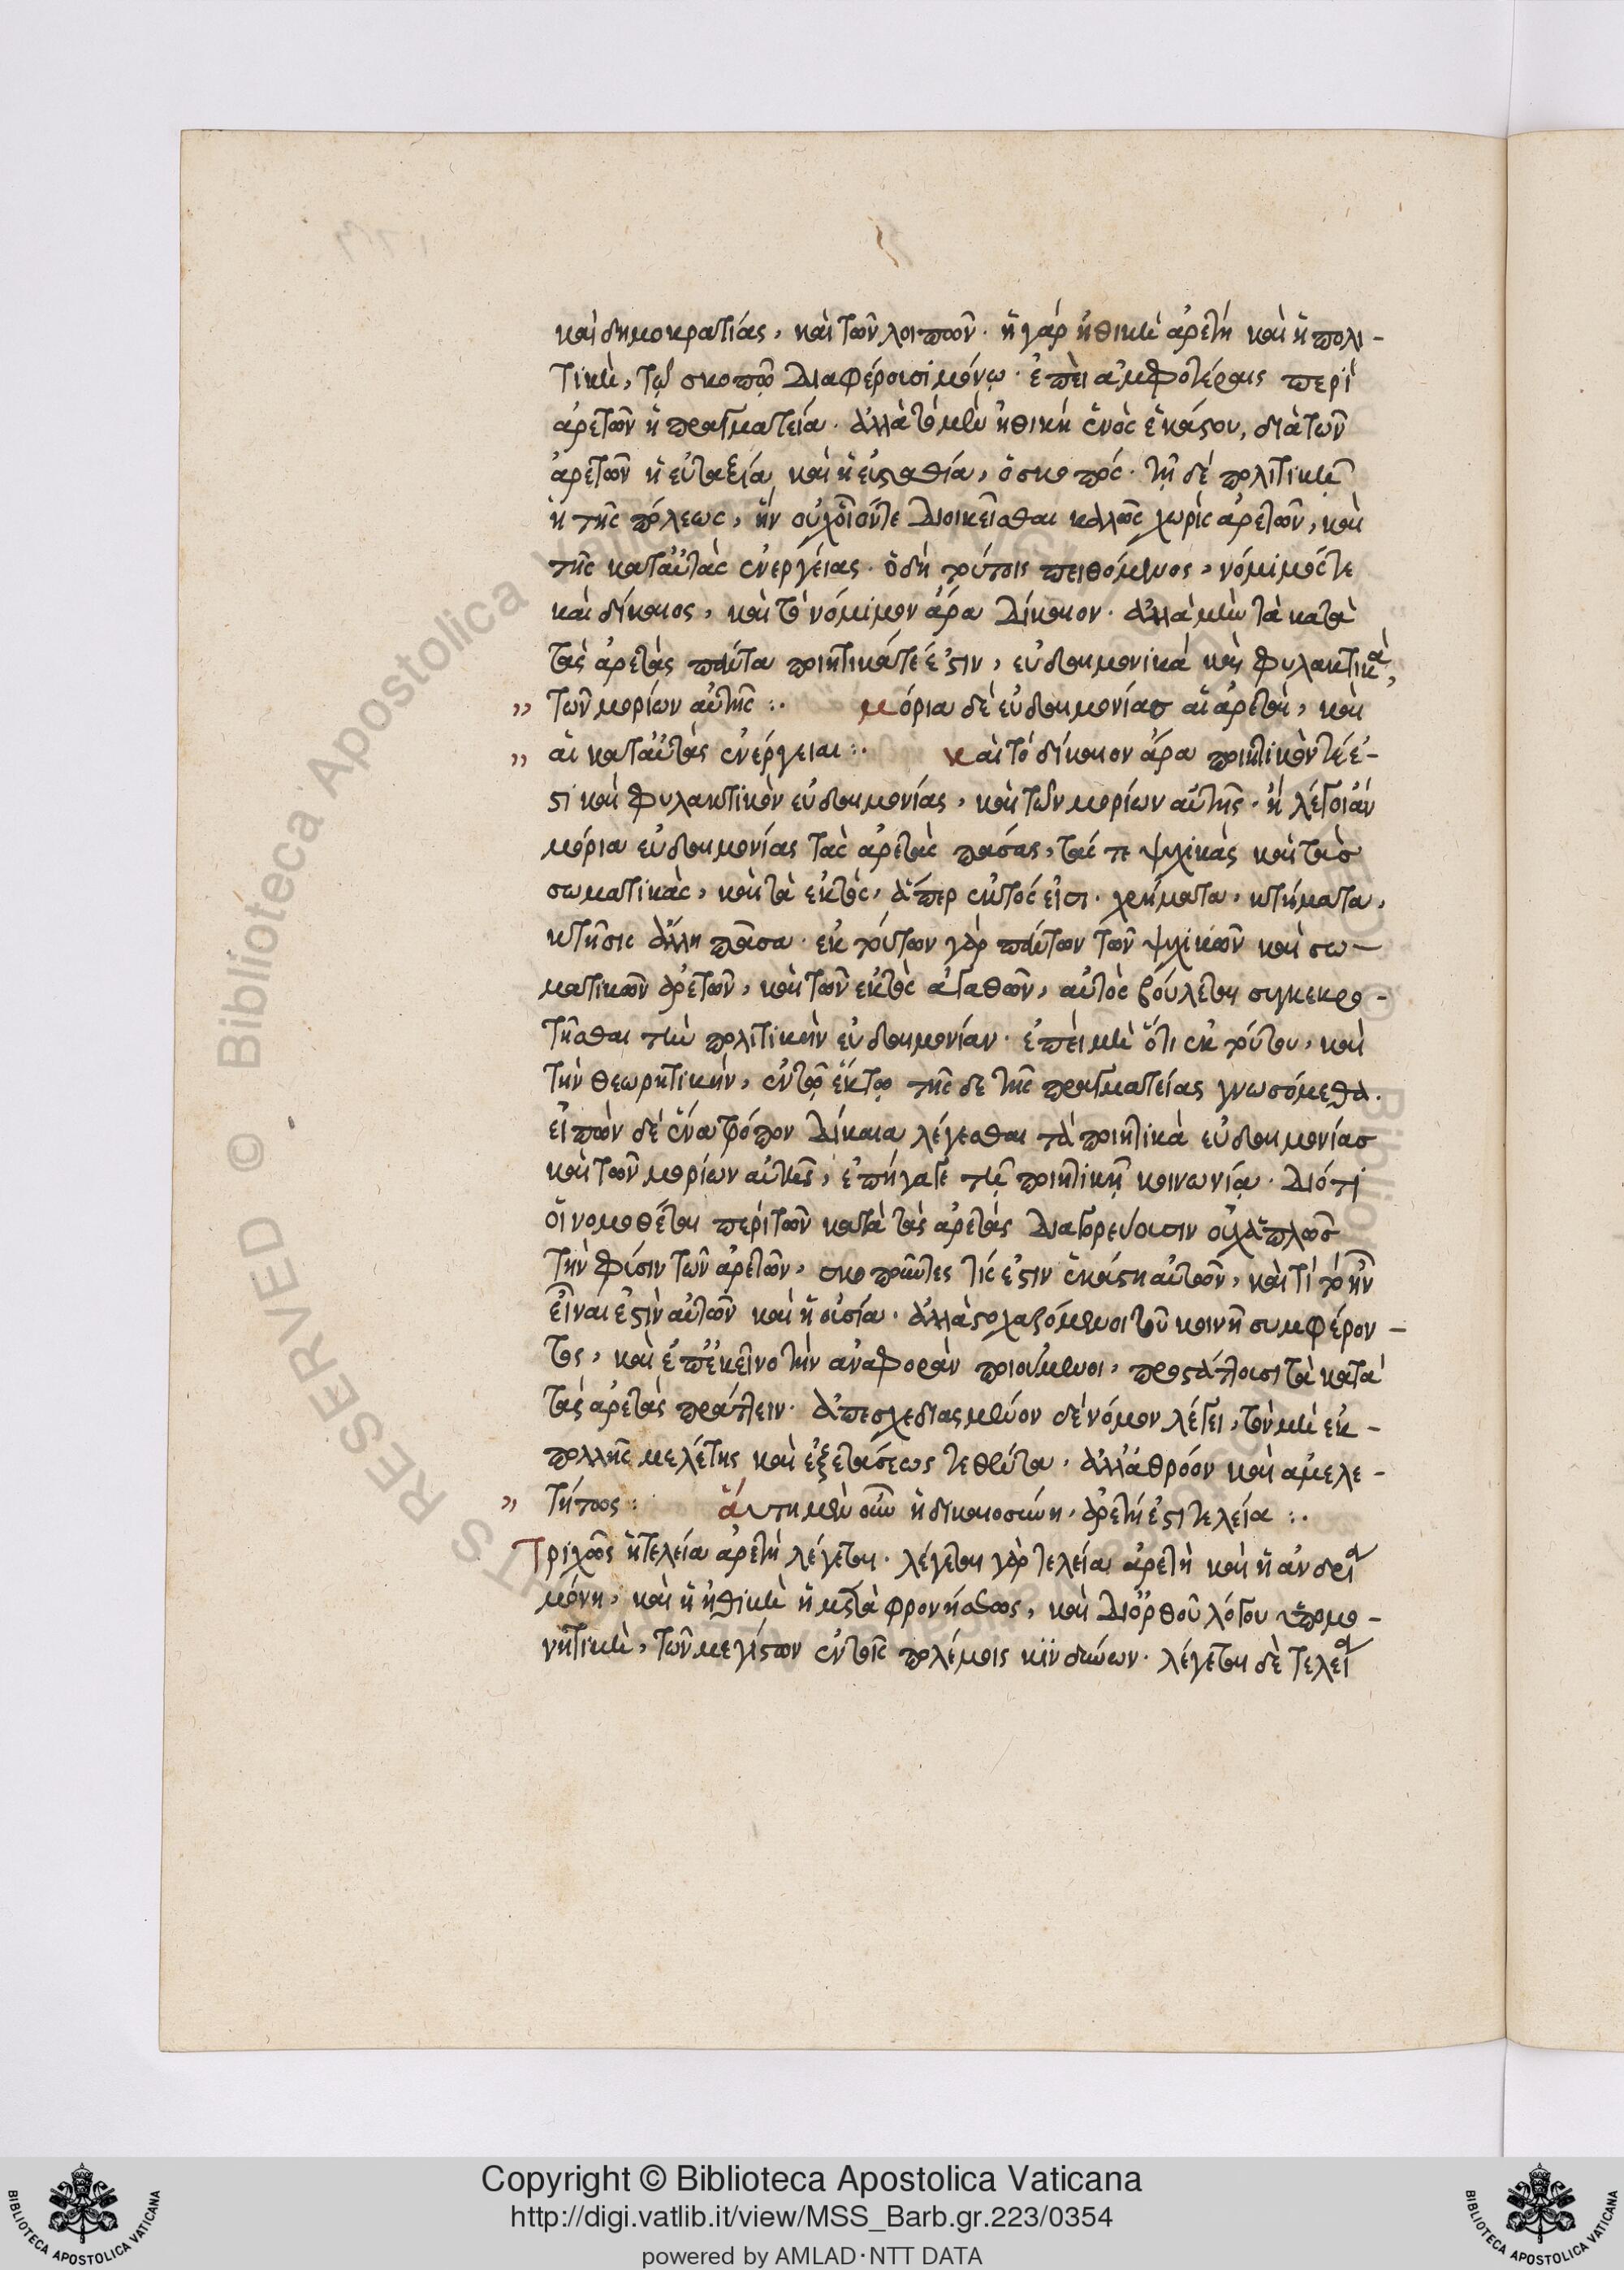 καὶ δημοκρατίας, καὶ τῶν λοιπῶν· ἡ γὰρ ἠθικὴ ἀρετὴ καὶ ἡ πολι-
τικὴ, τῷ σκοπῷ διαφέρουσι μόνῳ· ἐπεὶ ἀμφοτέραις περὶ
ἀρετῶν ἡ πραγματεία· ἀλλὰ τὸ μὲν ἠθικῆ ἑνὸς ἑκάστου, διὰ τῶν
ἀρετῶν ἡ εὐταξία καὶ ἡ εὐσταθία, ὁ σκοπός· τῇ δὲ πολιτικῇ
ἡ τῆς πόλεως, ἣν οὐχ οἷόντε διοικεῖσθαι καλῶς χωρὶς ἀρετῶν, καὶ
τῆς κατ' αὐτὰς ἐνεργείας· ὁ δὴ τούτοις πειθόμενος, νόμιμός τε
καὶ δίκαιος, καὶ τὸ νόμιμον ἄρα δίκαιον· ἀλλὰ μὴν τὰ κατὰ
τὰς ἀρετὰς πάντα ποιητικά τέ ἐστιν, εὐδαιμονικὰ καὶ φυλακτικὰ,
" τῶν μορίων αὐτῆς :· μόρια δὲ εὐδαιμονίας αἱ ἀρεταὶ, καὶ
" αἱ κατ' αὐτὰς ἐνέργειαι :· καὶ τὸ δίκαιον ἄρα ποιητικόν τέ ἐ-
στι καὶ φυλακτικὸν εὐδαιμονίας, καὶ τῶν μορίων αὐτῆς· ἢ λέγοι ἂν
μόρια εὐδαιμονίας τὰς ἀρετὰς πάσας, τάς τε ψυχικὰς καὶ τὰς
σωματικὰς, καὶ τὰ ἐκτὸς, ἅπερ ἐκτός εἰσι· χρήματα, κτήματα,
κτῆσις ἄλλη πᾶσα· ἐκ τούτων γὰρ πάντων τῶν ψυχικῶν καὶ σω-
ματικῶν ἀρετῶν, καὶ τῶν ἐκτὸς ἀγαθῶν, αὐτὸς βούλεται συγκεκρο-
τῆσθαι τὴν πολιτικὴν εὐδαιμονίαν· ἐπεὶ μὲν ὅτι ἐκ τούτου, καὶ
τὴν θεωρητικὴν, ἐν τῷ ἕκτῳ τῆσδε τῆς πραγματείας γνωσόμεθα.
εἰπὼν δὲ ἕνα τρόπον δίκαια λέγεσθαι τὰ ποιητικὰ εὐδαιμονίας
καὶ τῶν μορίων αὐτῆς, ἐπήγαγε τῇ ποιητικῇ κοινωνίᾳ· διότι
οἱ νομοθέται περὶ τῶν κατὰ τὰς ἀρετὰς διαγορεύουσιν οὐχ ἁπλῶς
τὴν φύσιν τῶν ἀρετῶν, σκοποῦντες τίς ἐστιν ἑκάστη αὐτῶν, καὶ τί τὸ ἦν
εἶναι ἐστὶν αὐτῶν καὶ ἡ οὐσία· ἀλλὰ στοχαζόμενοι τοῦ κοινῇ συμφέρον-
τος, καὶ ἐπ' ἐκεῖνο τὴν ἀναφορὰν ποιούμενοι, προστάττουσι τὰ κατὰ
τὰς ἀρετὰς πράττειν· ἀπεσχεδιασμένον δὲ νόμον λέγει, τὸν μὴ ἐκ-
πολλῆς μελέτης καὶ ἐξετάσεως τεθέντα, ἀλλ' ἀθρόον καὶ ἀμελε-
" τήτως : αὕτη μὲν οὖν ἡ δικαιοσύνη, ἀρετή ἐστι τελεία :·
Τριχῶς ἡ τελεία ἀρετὴ λέγεται· λέγεται γὰρ τελεία ἀρετὴ καὶ ἡ ἀνδρία
μόνη, καὶ ἡ ἠθικὴ ἡ μετὰ φρονήσεως, καὶ δι' ὀρθοῦ λόγου ὑπομο-
νητικὴ, τῶν μεγίστων ἐν τοῖς πολέμοις κινδύνων· λέγεται δὲ τελεία
Copyright © Biblioteca Apostolica Vaticana
http://digi.vatlib.it/view/MSS_Barb.gr.223/0354
powered by AMLAD·NTT DATA